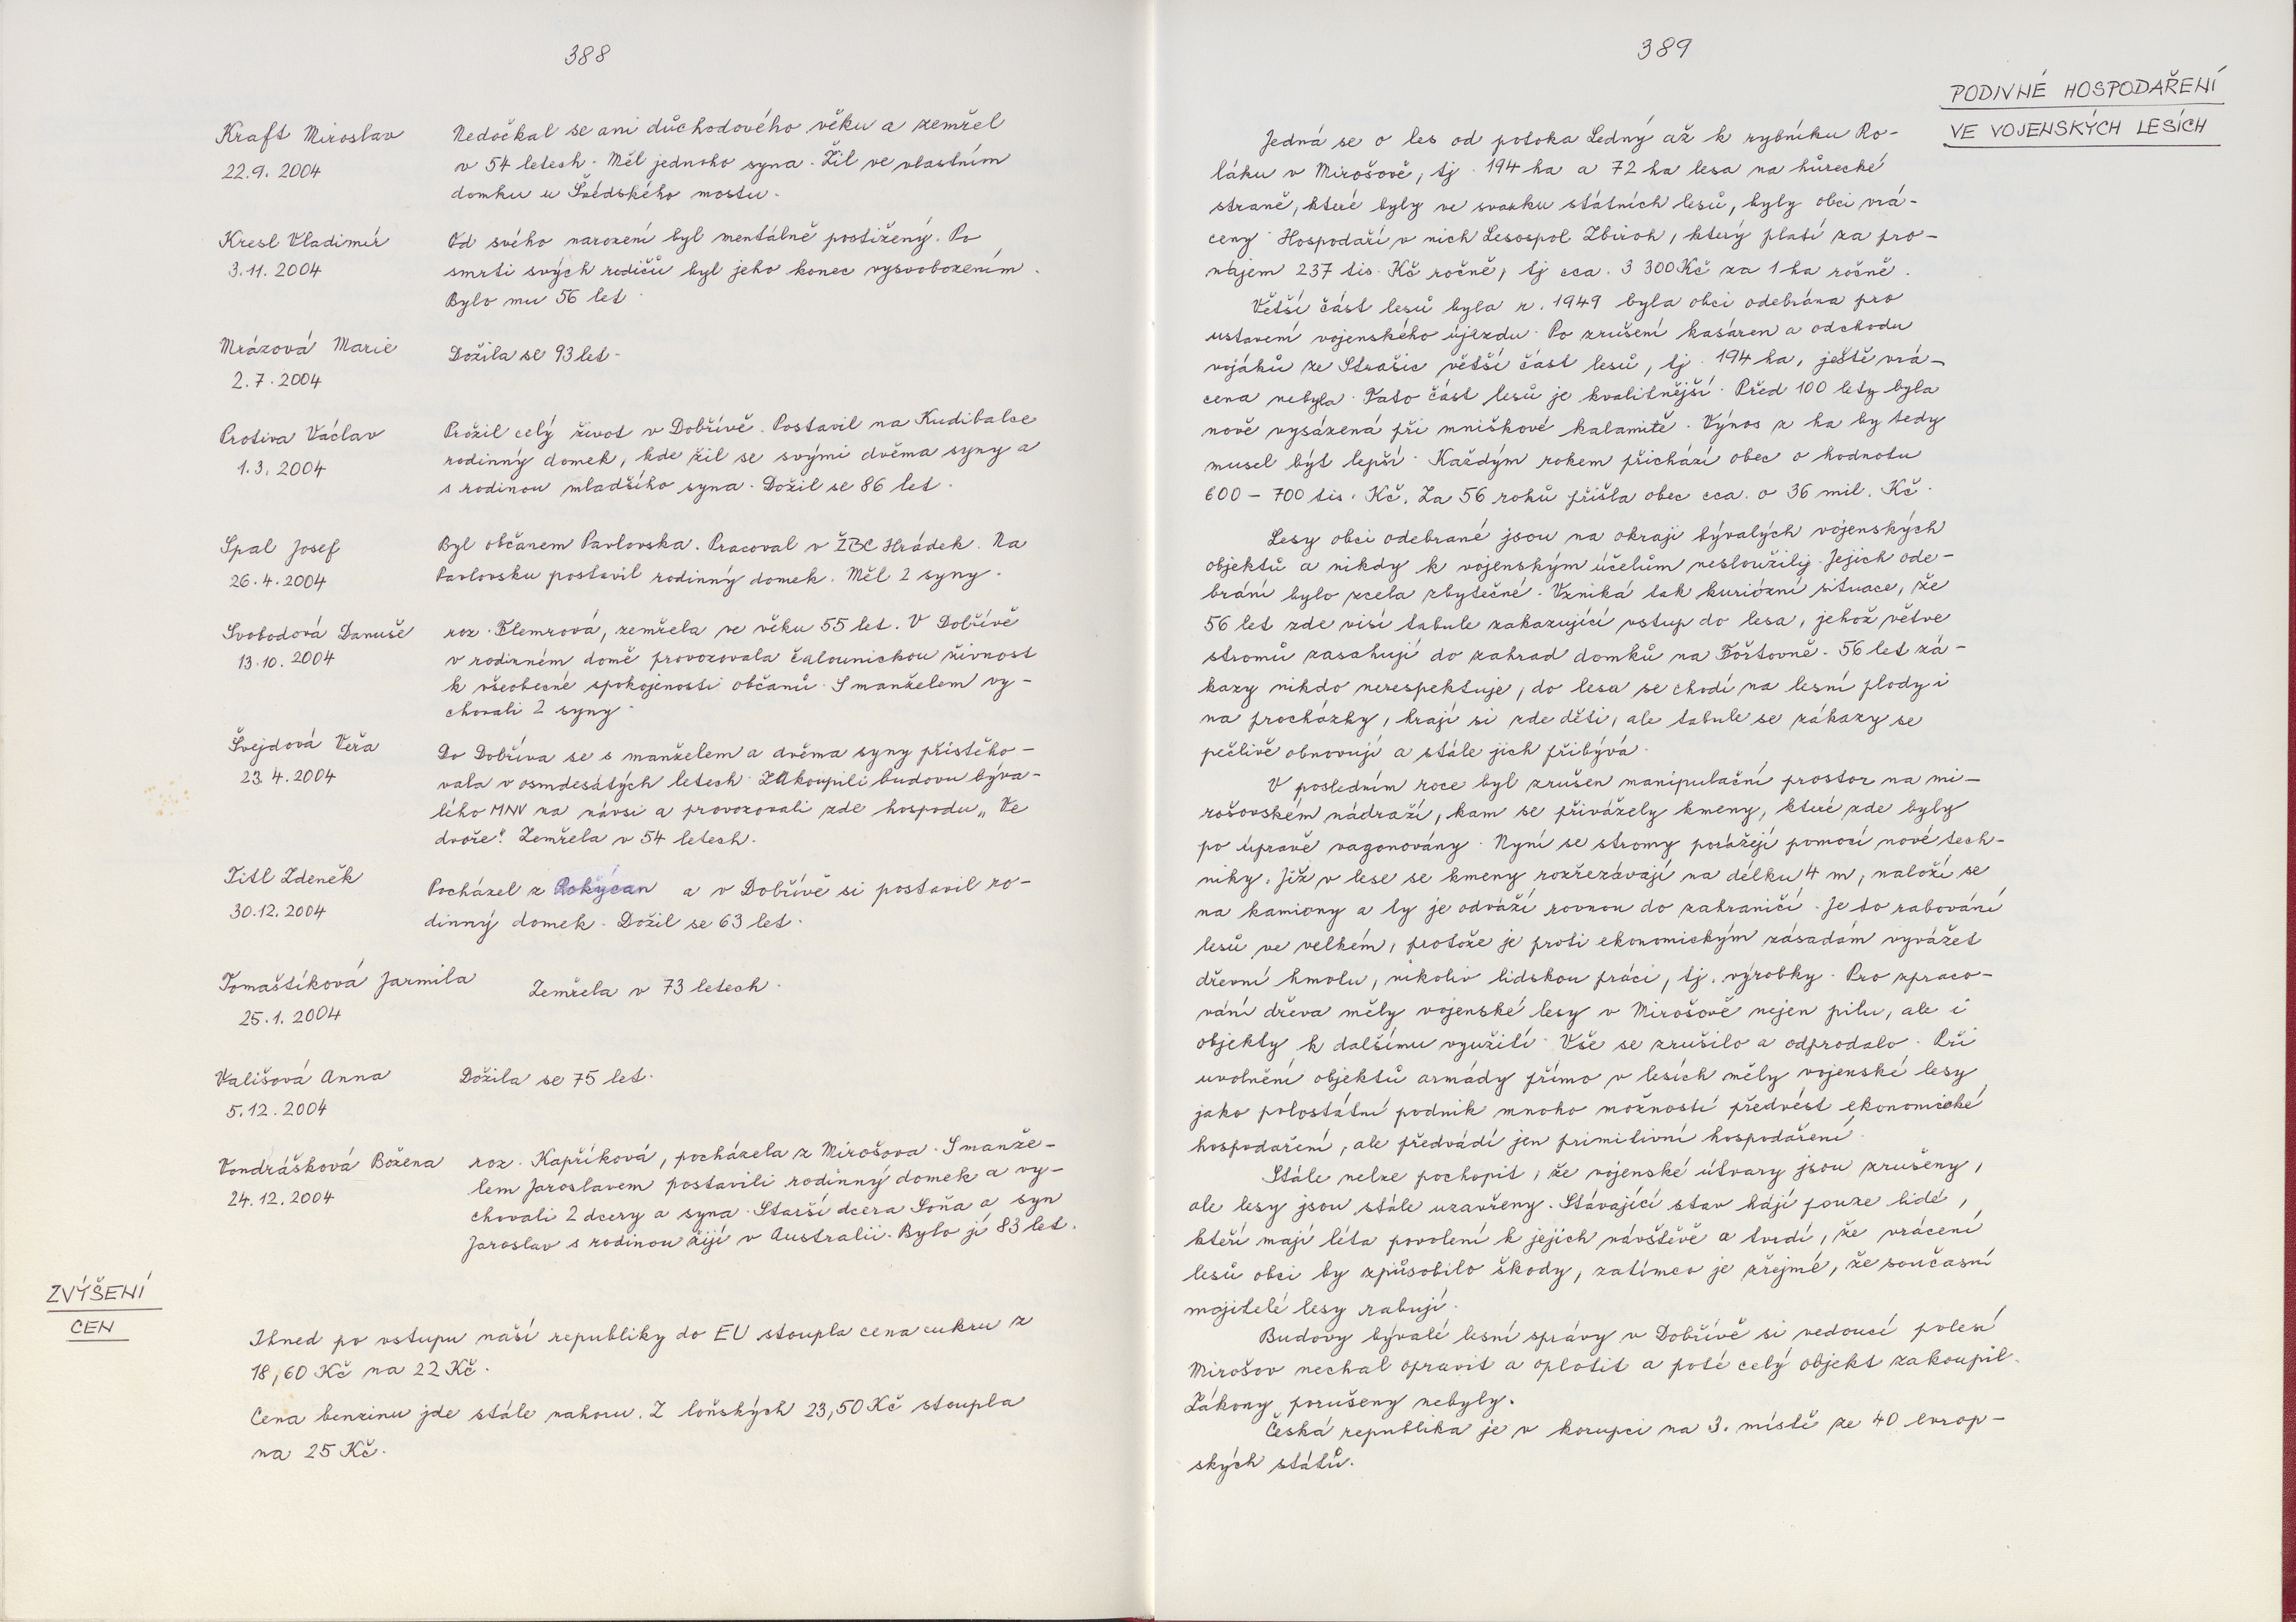 388
Kraft Miroslav Nedočkal se ani důchodového věku a zemřel
22.9.2004 v 54 letech. Měl jednoho syna. Žil ve vlastním
domku u Švédského mostu.
Kresl Vladimír Od svého narození byl mentálně postižený. Po
3.11.2004 smrti svých rodičů byl jeho konec vysvobozením.
Bylo mu 56 let.
Mrázová Marie Dožila se 93 let.
2.7.2004
Protiva Václav Prožil celý život v Dobřívě. Postavil na Kudibalce
1.3.2004 rodinný domek, kde žil se svými dvěma syny a
s rodinou mladšího syna. Dožil se 86 let.
Spal Josef Byl občanem Pavlovska. Pracoval v ŽBC Hrádek. Na
26.4.2004 Pavlovsku postavil rodinný domek. Měl 2 syny.
Svobodová Danuše roz. Flemrová, zemřela ve věku 55 let. V Dobřívě
13.10.2004 v rodinném domě provozovala čalounickou živnost
k všeobecné spokojenosti občanů. S manželem vy-
chovali 2 syny.
Švejdová Věra Do Dobříva se s manželem a dvěma syny přistěho-
23.4.2004 vala v osmdesátých letech. Zakoupili budovu býva-
lého MNV na návsi a provozovali zde hospodu „Ve
dvoře". Zemřela v 54 letech.
Titl Zdeněk Pocházel z Rokycan a v Dobřívě si postavil ro-
30.12.2004 dinný domek. Dožil se 63 let.
Tomaštíková Jarmila Zemřela v 73 letech.
25.1.2004
Vališová Anna Dožila se 75 let.
5.12.2004
Vondrášková Božena roz. Kapříková, pocházela z Mirošova. S manže-
24.12.2004 lem Jaroslavem postavili rodinný domek a vy-
chovali 2 dcery a syna. Starší dcera Soňa a syn
Jaroslav s rodinou žijí v Australii. Bylo jí 83 let.
ZVÝŠENÍ
CEN
Ihned po vstupu naší republiky do EU stoupla cena cukru z
18,60 Kč na 22 Kč.
Cena benzinu jde stále nahoru. Z loňských 23,50 Kč stoupla
na 25 Kč.
389
PODIVNÉ HOSPODAŘENÍ
VE VOJENSKÝCH LESÍCH
Jedná se o les od potoka Ledný až k rybníku Ro-
láku v Mirošově, tj. 194 ha a 72 ha lesa na hůrecké
straně, které byly ve svazku státních lesů, byly obci vrá-
ceny. Hospodaří v nich Lesospol Zbiroh, který platí za pro-
nájem 237 tis. Kč ročně, tj cca. 3 300 Kč za 1 ha ročně.
Větší část lesů byla r. 1949 byla obci odebrána pro
ustavení vojenského újezdu. Po zrušení kasáren a odchodu
vojáků ze Strašic větší část lesů, tj. 194 ha, ještě vrá-
cena nebyla. Tato část lesů je kvalitnější. Před 100 lety byla
nově vysázená při mniškové kalamitě. Výnos z ha by tedy
musel být lepší. Každým rokem přichází obec o hodnotu
600 - 700 tis. Kč. Za 56 roků přišla obec cca. o 36 mil. Kč.
Lesy obci odebrané jsou na okraji bývalých vojenských
objektů a nikdy k vojenským účelům nesloužily. Jejich ode-
brání bylo zcela zbytečné. Vzniká tak kuriózní situace, že
56 let zde visí tabule zakazující vstup do lesa, jehož větve
stromů zasahují do zahrad domků na Fořtovně. 56 let zá-
kazy nikdo nerespektuje, do lesa se chodí na lesní plody i
na procházky, hrají si zde děti, ale tabule se zákazy se
pečlivě obnovují a stále jich přibývá.
V posledním roce byl zrušen manipulační prostor na mi-
rošovském nádraží, kam se přivážely kmeny, které zde byly
po úpravě vagonovány. Nyní se stromy porážejí pomocí nové tech-
niky. Již v lese se kmeny rozřezávají na délku 4 m, naloží se
na kamiony a ty je odváží rovnou do zahraničí. Je to rabování
lesů ve velkém, protože je proti ekonomickým zásadám vyvážet
dřevní hmotu, nikoliv lidskou práci, tj. výrobky. Pro zpraco-
vání dřeva měly vojenské lesy v Mirošově nejen pilu, ale i
objekty k dalšímu využití. Vše se zrušilo a odprodalo. Při
uvolnění objektů armády přímo v lesích měly vojenské lesy
jako polostátní podnik mnoho možností předvést ekonomické
hospodaření, ale předvádí jen primitivní hospodaření.
Stále nelze pochopit, že vojenské útvary jsou zrušeny,
ale lesy jsou stále uzavřeny. Stávající stav hájí pouze lidé,
kteří mají léta povolení k jejich návštěvě a tvrdí, že vrácení
lesů obci by způsobilo škody, zatímco je zřejmé, že současní
majitelé lesy rabují.
Budovy bývalé lesní správy v Dobřívě si vedoucí polesí
Mirošov nechal opravit a oplotit a poté celý objekt zakoupil.
Zákony porušeny nebyly.
Česká republika je v korupci na 3. místě ze 40 evrop-
ských států.